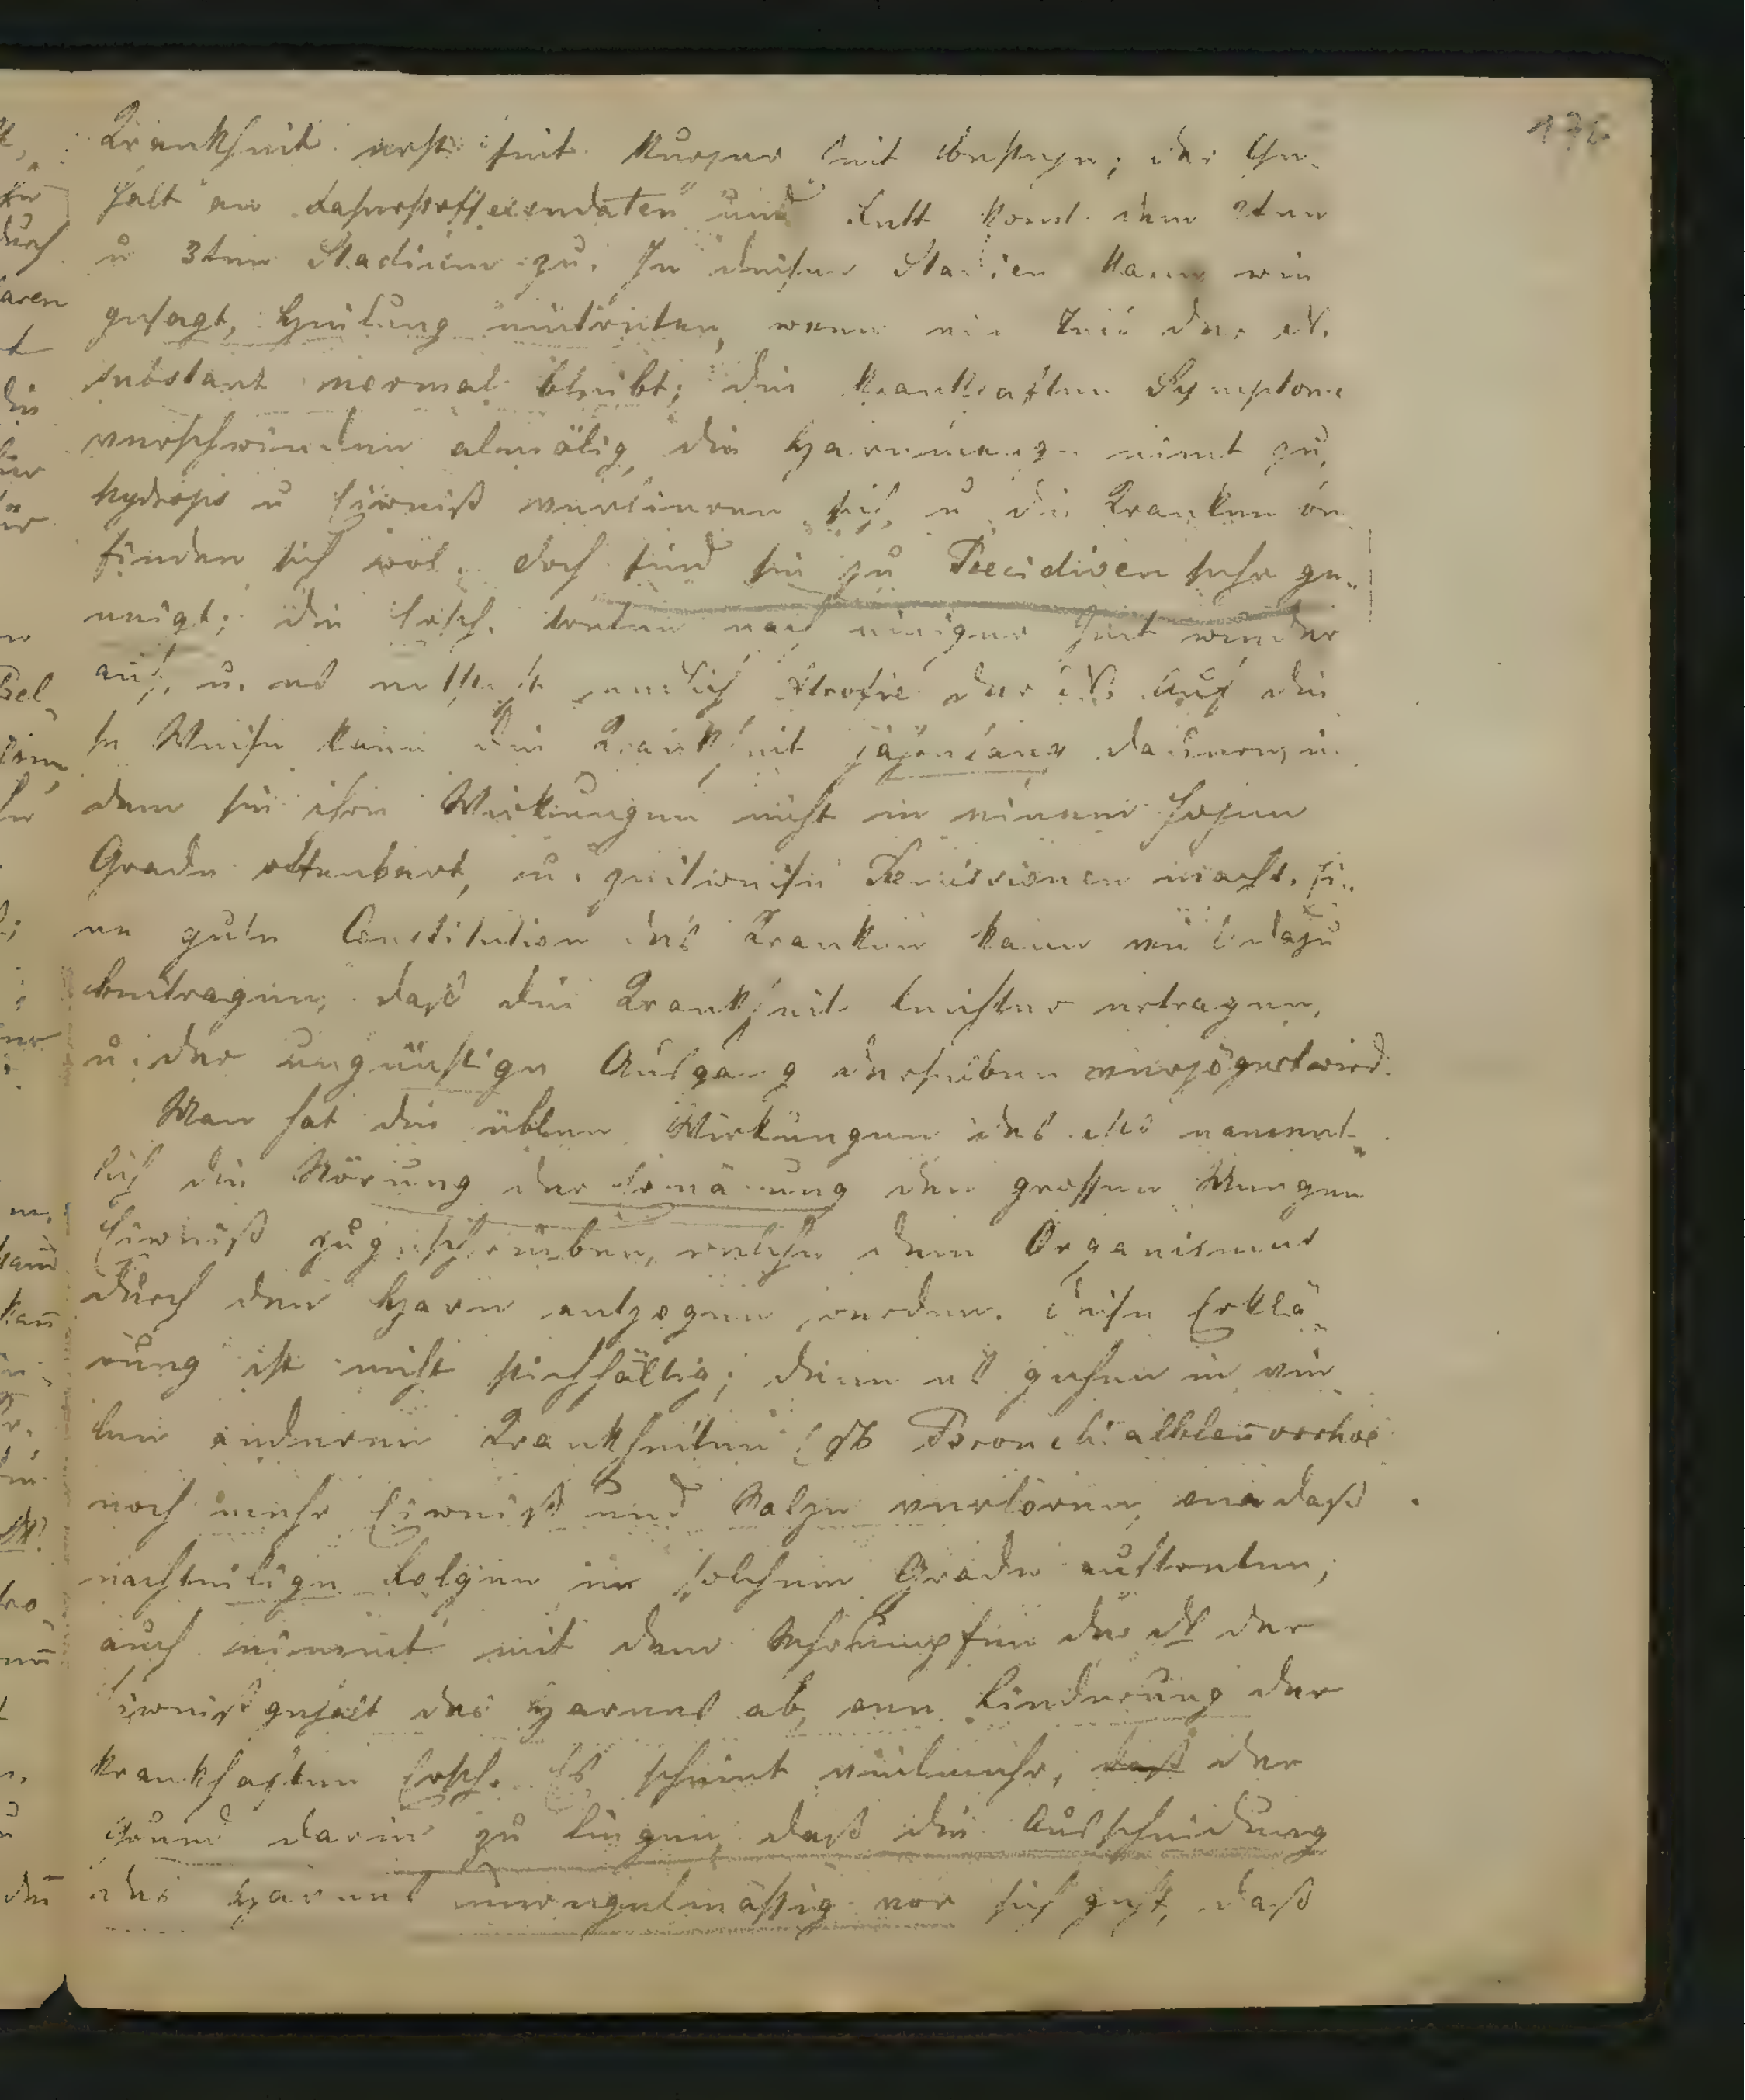 176
Krankheit erst seit kurzer Zeit bestehe; der Ge-
halt an Faserstoffexsudaten und Fett komt dem 2ten
u 3ten Stadium zu. In diesen Stadien kann, wie
gesagt, Heilung eintreten, wenn ein Teil der N.
substanz normal bleibt; die krankhaften Symptome
verschwinden almälig, die Harnmenge nimt zu,
hydrops u Eiweiß verlieren sich, u die Kranken be
finden sich wol. Doch sind sie zu Recidiven sehr ge-
neigt; die Ersch. treten nach einiger Zeit wieder
auf, u. es entsteht endlich Atrofie der N. Auf die
se Weise kann die Krankheit jahrelang dauern, in
dem sie ihre Wirkungen nicht in einem hohen
Grade offenbart, u. zeitweise Remissionen macht. Ei-
ne gute Constitution des Kranken kann viel dazu
beitragen, daß die Krankheit leichter ertragen,
u. der ungünstige Ausgang derselben verzögert wird.
Man hat die üblen Wirkungen des nament-
lich die Störung der Ernärung den grossen Mengen
Eiweiß zugeschrieben, welche dem Organismus
durch den Harn entzogen werden. Diese Erklä-
rung ist nicht stichhältig; denn es gehen in vie
len anderen Krankheiten (zB Bronchialblennorrhoe
noch mehr Eiweiß und Salze verloren, one daß
nachteilige Folgen in solchem Grade auftreten;
auch nimmt mit dem Schrumpfen der N der
Eiweißgehalt des Harnes ab, one Linderung der
krankhaften Ersch. Es scheint vielmehr, daß der
Grund darin zu liegen, daß die Ausscheidung
des Harnes unregelmässig vor sich geht, daß